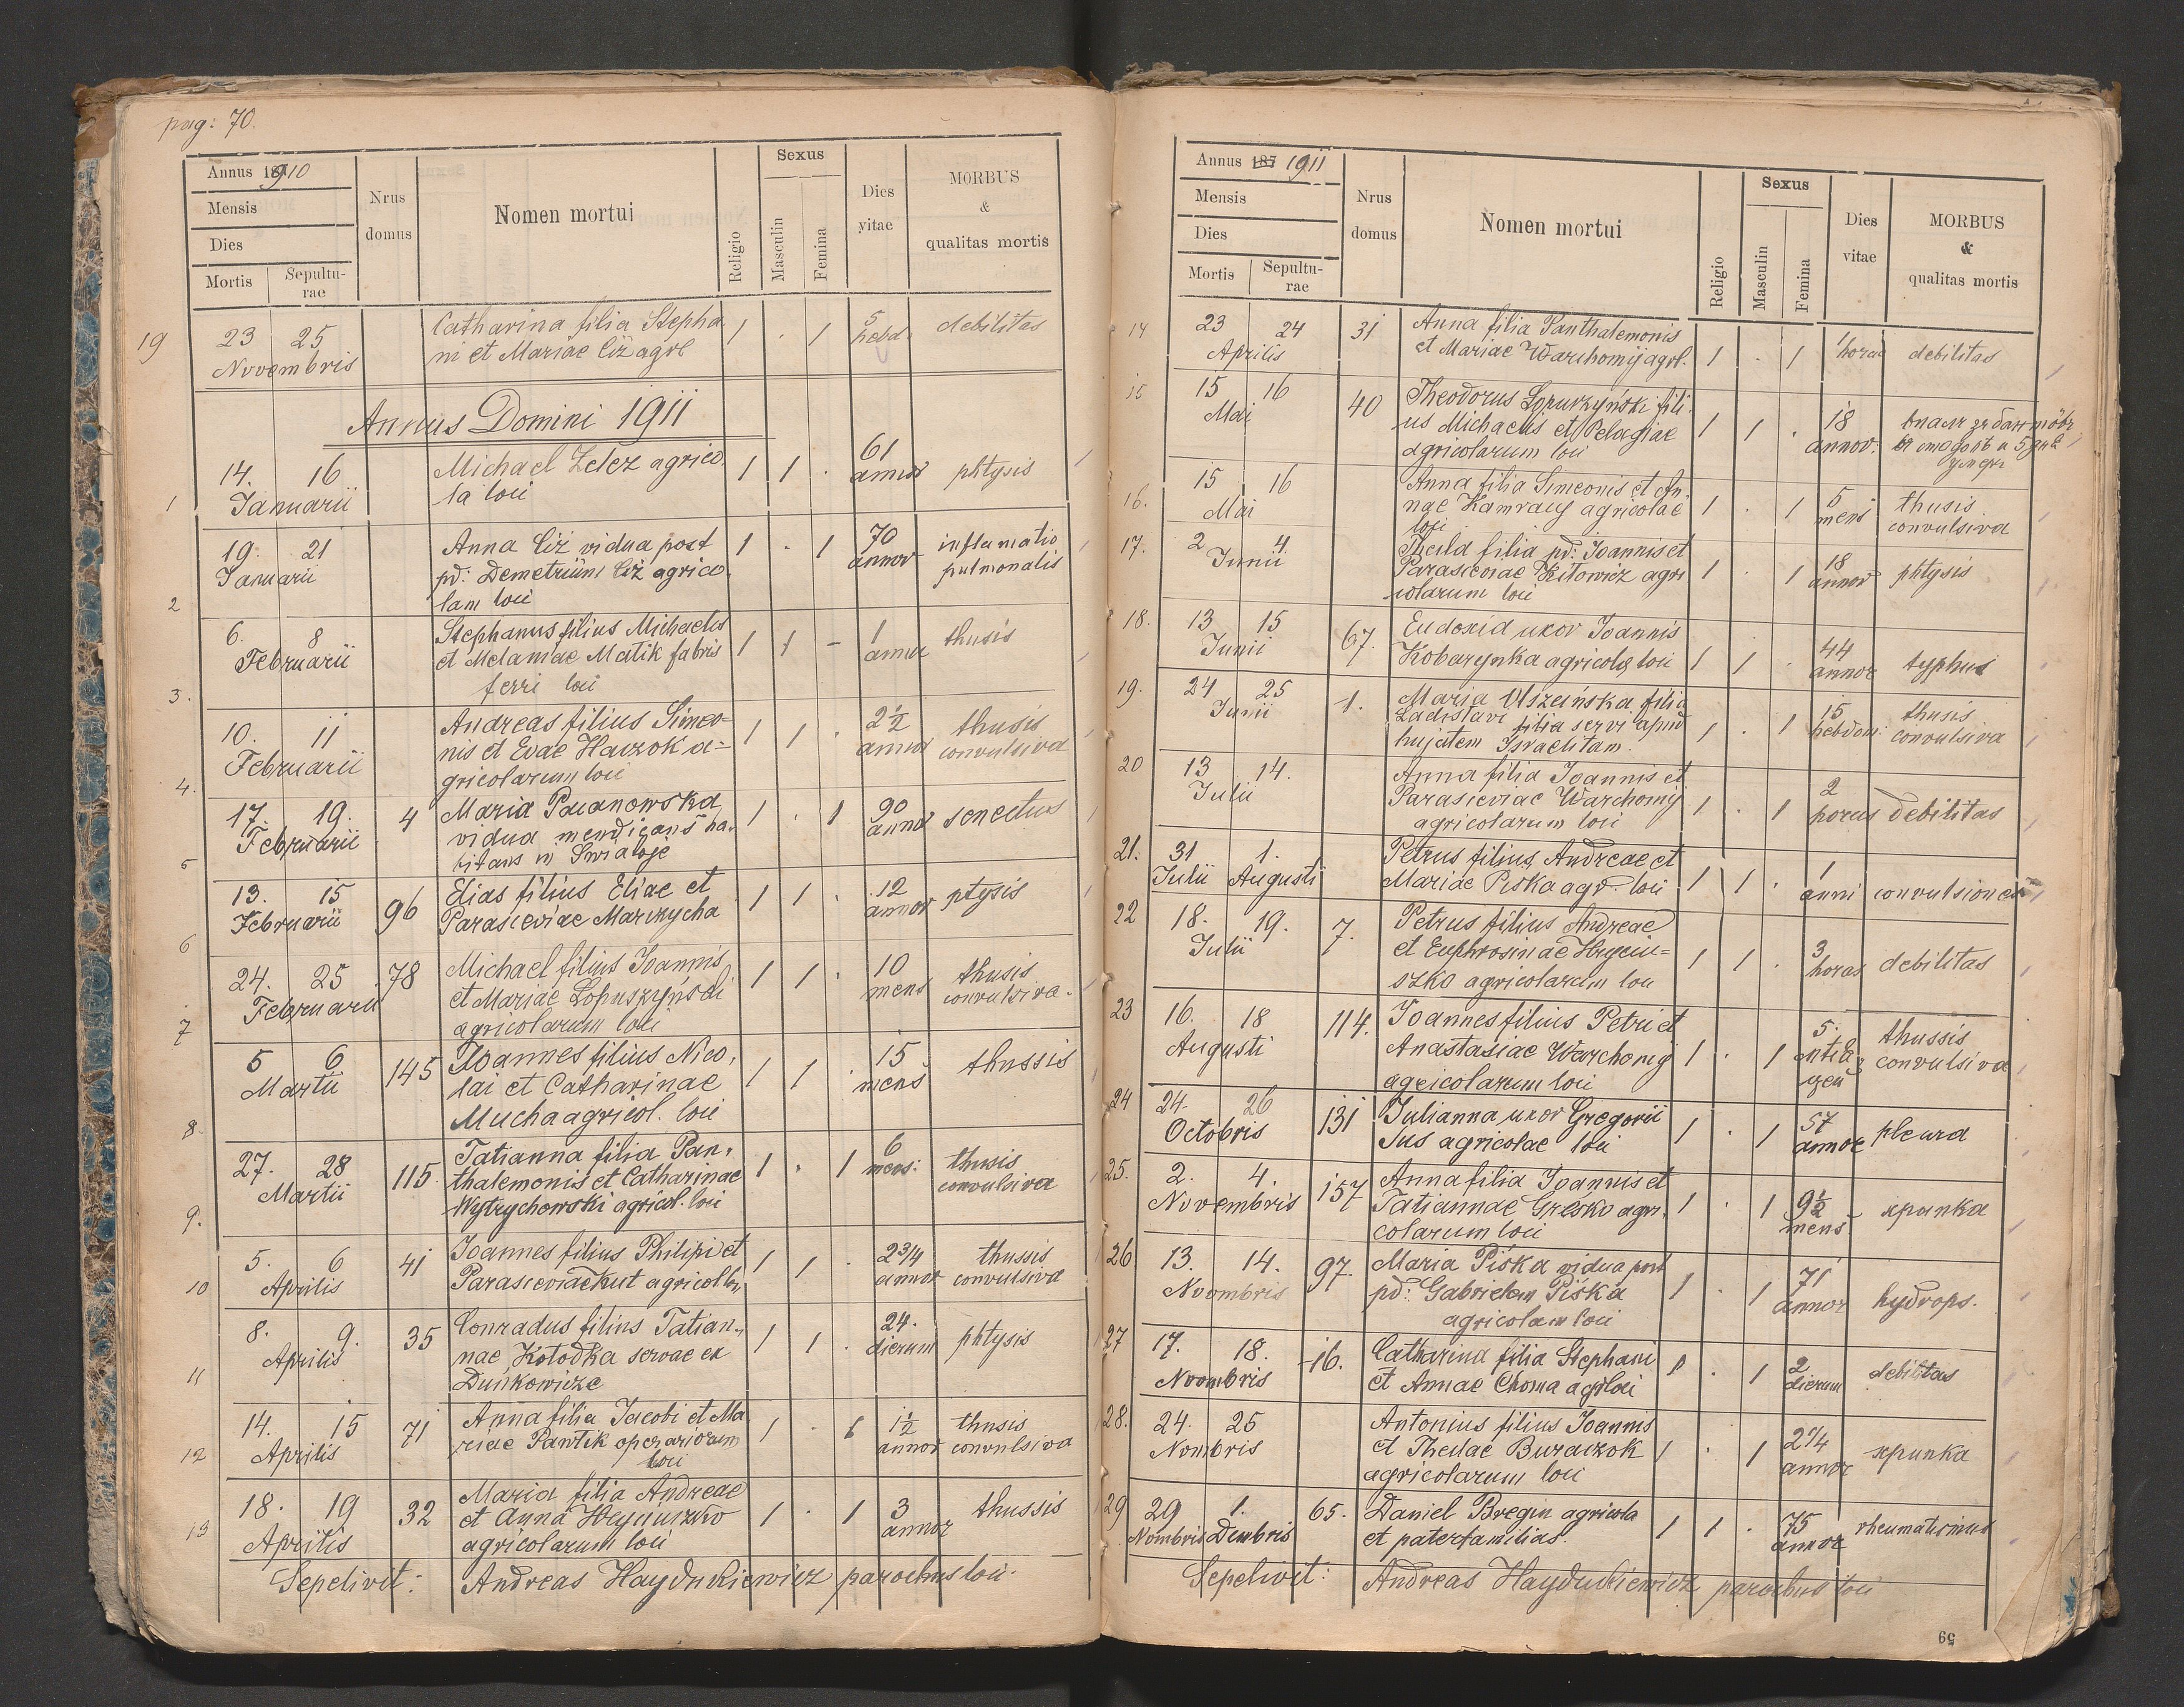 pag: 70.
Annus 1910
Mensis
Dies
Mortis
Sepultu-
rae
Nrus
domus
Nomen mortui
Religio
Sexus
Masculin
Femina
Dies
vitae
MORBUS
&
qualitas mortis
19 23 25 Catharina filia Stepha 1 . 1 5 debilitas
Novembris ni et Mariae Ciż agrl hebd.
Annus Domini 1911
1 14. 16 Michael Zelez agrico 1 1 . 61 phtysis
Januarii la loci annor
2 19. 21 Anna Ciż vidua post 1 . 1 70 inflamatio
Januarii pd: Demetrium Ciż agrico annor pulmonalis
lam loci
3. 6. 8 Stephanus filius Michaelis 1 1 - 1 thusis
Februarii et Melaniae Matik fabris
ferri loci
4. 10. 11 Andreas filius Simeo= 1 1 . 2 1/2 thusis
Februarii nis et Evae Haczok a= annor convulsiva
gricolarum loci
5 17. 19. 4 Maria Pacanowska 1 . 1 90 senectus
Februarii vidua mendicans ha annor
bitans in Swiatoje
6 13. 15 96 Elias filius Eliae et 1 1 . 12 ptysis
Februarii Parasceviae Marczycha annor
7 24. 25 78 Michael filius Joannis 1 1 . 10 thusis
Februarii et Mariae Łopuszyński mens convulsiva.
agricolarum loci
8. 5 6 145 Joannes filius Nico, 1 1 . 15 thussis
Martii lai et Catharinae mens
Mucha agricol. loci
9. 27. 28 115. Tatianna filia Pan, 1 . 1 6 thusis
Martii thalemonis et Catharinae mens: convulsiva
Wytrychowski agricol. loci
10 5. 6 41 Joannes filius Philipi et 1 1 . 2 3/4 thussis
Aprilis Parasceviae Kut agricol loci annor convulsiva
11 8. 9. 35 Conradus filius Tatian, 1 1 . 24. phtysis
Aprilis nae Kołodka servae ex dierum
Duńkowicze
12 14. 15 71 Anna filia Jacobi et Ma 1 . 1 1 1/2 thusis
Aprilis riae Pawtik operariorum annor convulsiva
loci
13 18. 19 32 Maria filia Andreae 1 . 1 3 thussis
Aprilis et Anna annor
agricolarum loci
Sepelivit: Andreas Haydukiewicz parochus loci.
Annus 187 1911
Mensis
Dies
Mortis
Sepultu-
rae
Nrus
domus
Nomen mortui
Religio
Sexus
Masculin
Femina
Dies
vitae
MORBUS
&
qualitas mortis
14 23 24 31 Anna filia Panthalemonis 1 . 1 1 debilitas
Aprilis et Mariae Warchomij agrl. horae
15 15 16 40 Theodorus Łopuszyński fili 1 1 . 18
Mai us Michaelis et Pelagiae annor:
agricolarum loci
16. 15 16 Anna filia Simeonis et An, 1 . 1 5 thusis
Mai nae Kamraczy agricolae mens convulsiva
loci
17. 2 4. Thecla filia pd: Joannis et 1 . 1 18 phtysis
Junii Parasceviae Kitowicz agri annor
colarum loci
18. 13 15 67. Eudoxia uxor Joannis 1 1 . 44 typhus
Junii Kobarynka agricolae loci annor
19. 24 25 1. Maria Olszeińska filia 1 . 1 15 thusis
Junii Ladislavi filia servi apud hebdom: convulsiva
hujatem Israelitam.
20 13 14. Anna filia Joannis et 1 . 1 2 debilitas
Julii Parasceviae Warchomij horas
agricolarum loci
21. 31 1. Petrus filius Andreae et 1 1 . 1
Julii Augusti Mariae Piska agr. loci anni convulsiones
22 18. 19. 7. Petrus filius Andreae 1 1 . 3
Julii et Euphrosinae Hryciu= horas debilitas
szko agricolarum loci
23 16. 18 114. Joannes filius Petri et 1 . 1 5. thussis
Augusti Anastasiae Warchomij convulsiva
agricolarum loci
24 24. 26 131 Julianna uxor Gregorii 1 . 1 57 pleura
Octobris Jus agricolae loci annor
25. 2. 4. 157 Anna filia Joannis et 1 . 1 9 1/2 xpunka
Novembris Tatiannae Gresko agri, mens
colarum loci
26 13. 14. 97. Maria Piska vidua post 1 . 1 71 hydrops.
Novmbris pd: Gabrielem Piska annor
agricolam loci
27 17. 18. 16. Catharina filia Stephani 1 . 1 2 debilitas
Novmbris et Annae Choma agr loci dierum
28. 24. 25 Antonius filius Joannis 1 . 1 2 1/4 xpunka
Novmbris et Theclae Buraczok annor
agricolarum loci
29 29 1. 65. Daniel Bregin agricola 1 1 . 75 rheumatismus
Novmbris Dembris et paterfamilias. annor
Sepelivit: Andreas Haydukiewicz parochus loci
69